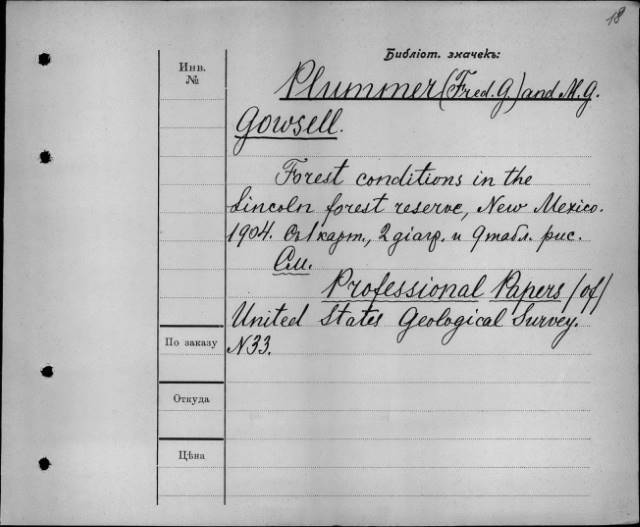 18
Библіот. значекъ:
Инв.
№
Plummer (Fred. G) and M. G.
Gowsell.
Forest conditions in the
Lincoln forest reserve, New Mexico.
1904. Съ 1 карт., 2 діагр. и 9 табл. рис.
См.
Professional Papers (of)
United States Geological Survey.
По заказу
N33.
Откуда
Цѣна